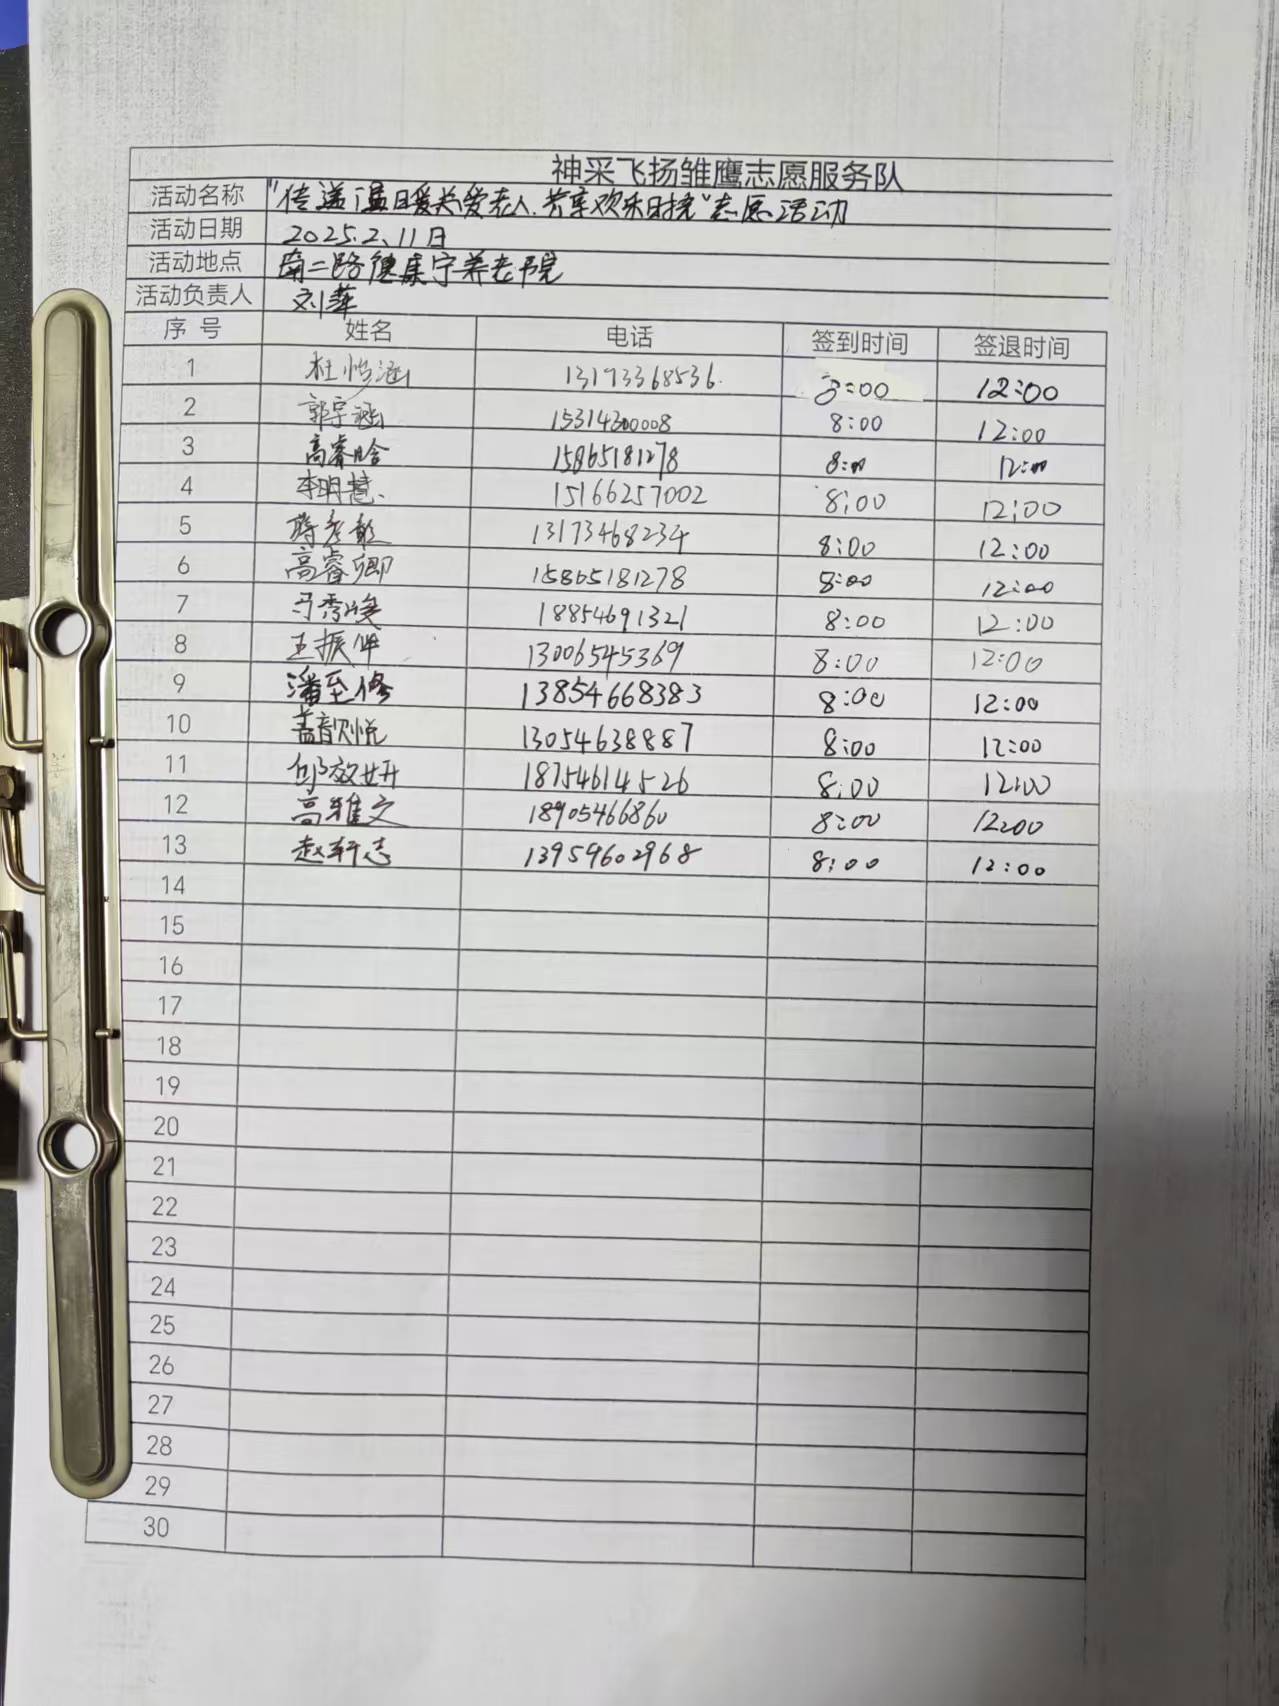 神采飞扬雏鹰志愿服务队
活动名称 "传递温暖关爱老人.共享欢乐时光"志愿活动
活动日期 2025.2.11日
活动地点 南二路健康宁养老院
活动负责人 刘萍
序号 姓名 电话 签到时间 签退时间
1 杜怡涵 13193368536. 8:00 12:00
2 郭宇涵 15314300008 8:00 12:00
3 高睿晗 15865181278 8:00 12:00
4 李明慧 15166257002 8:00 12:00
5 13173468234 8:00 12:00
6 高睿卿 15865181278 8:00 12:00
7 18854691321 8:00 12:00
8 王振华 13006545369 8:00 12:00
9 潘至修 13854668383 8:00 12:00
10 盖歆悦 13054638887 8:00 12:00
11 邰效妍 18754614526 8:00 12:00
12 高雅文 18905466860 8:00 12:00
13 赵轩志 13959602968 8:00 12:00
14
15
16
17
18
19
20
21
22
23
24
25
26
27
28
29
30